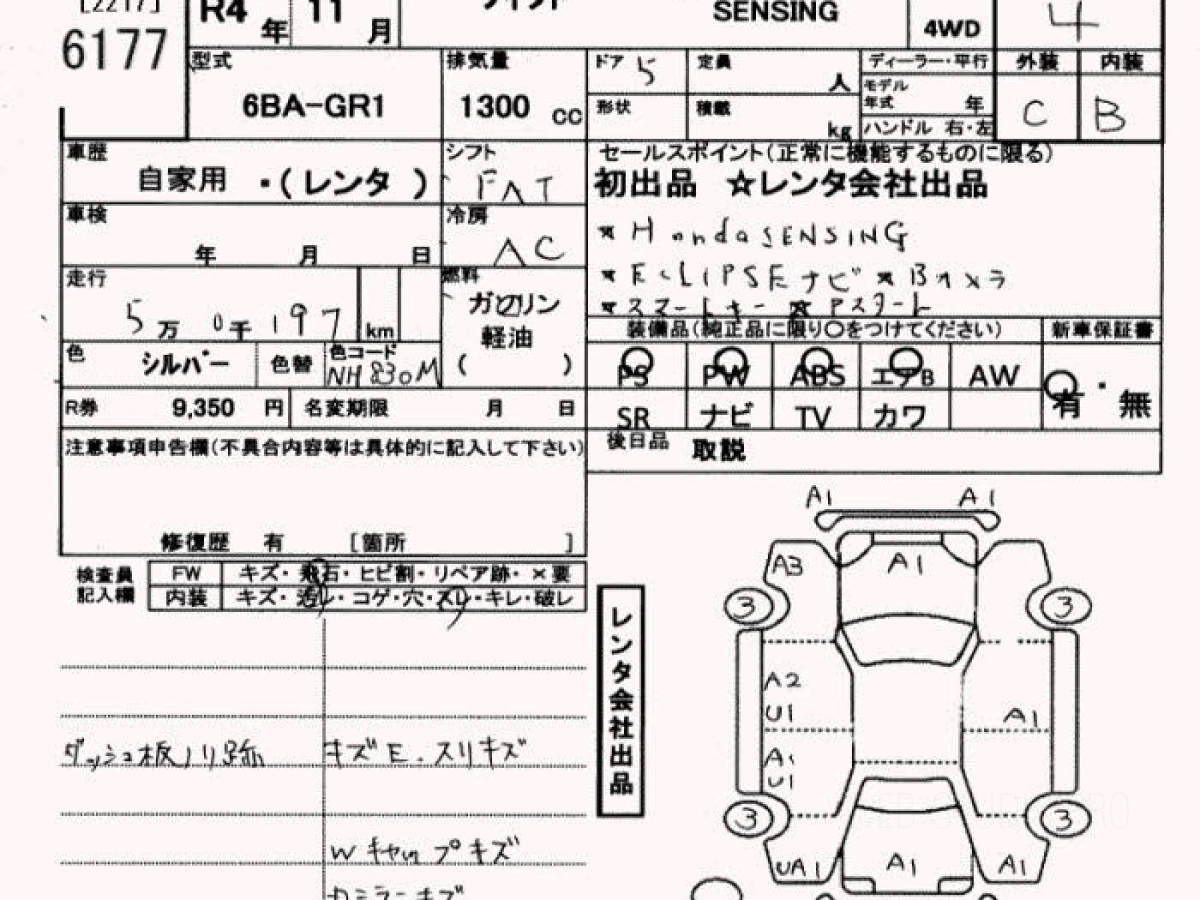 [2217]
6177
R4 年 11 月
SENSING
4WD
4
型式
6BA-GR1
排気量
1300 cc
ドア 5
定員
人
形状
積載
kg
ディーラー・平行
モデル年式 年
ハンドル 右・左
外装
C
内装
B
車歴
自家用 ・(レンタ )
シフト
FAT
車検
年 月 日
冷房
AC
走行
5万 0千 197 km
燃料
ガソリン
軽油
( )
色
シルバー
色替
色コード
NH830M
R券 9,350 円
名変期限 月 日
注意事項申告欄(不具合内容等は具体的に記入して下さい)
修復歴 有 [箇所 ]
セールスポイント(正常に機能するものに限る)
初出品 ☆レンタ会社出品
★HondaSENSING
★ECLIPSEナビ★Bカメラ
★スマートキー ★Pスタート
装備品(純正品に限り○をつけてください)
新車保証書
PS PW ABS エアB AW
SR ナビ TV カワ
有・無
後日品 取説
検査員記入欄
FW キズ・飛石・ヒビ割・リペア跡・×要
内装 キズ・汚レ・コゲ・穴・スレ・キレ・破レ
ダッシュ板ノリ跡
キズE.スリキズ
Wキャップキズ
レンタ会社出品
A1 A1
A3 A1
3 3
A2
U1
A1
A1
U1
3 3
UA1 A1 A1